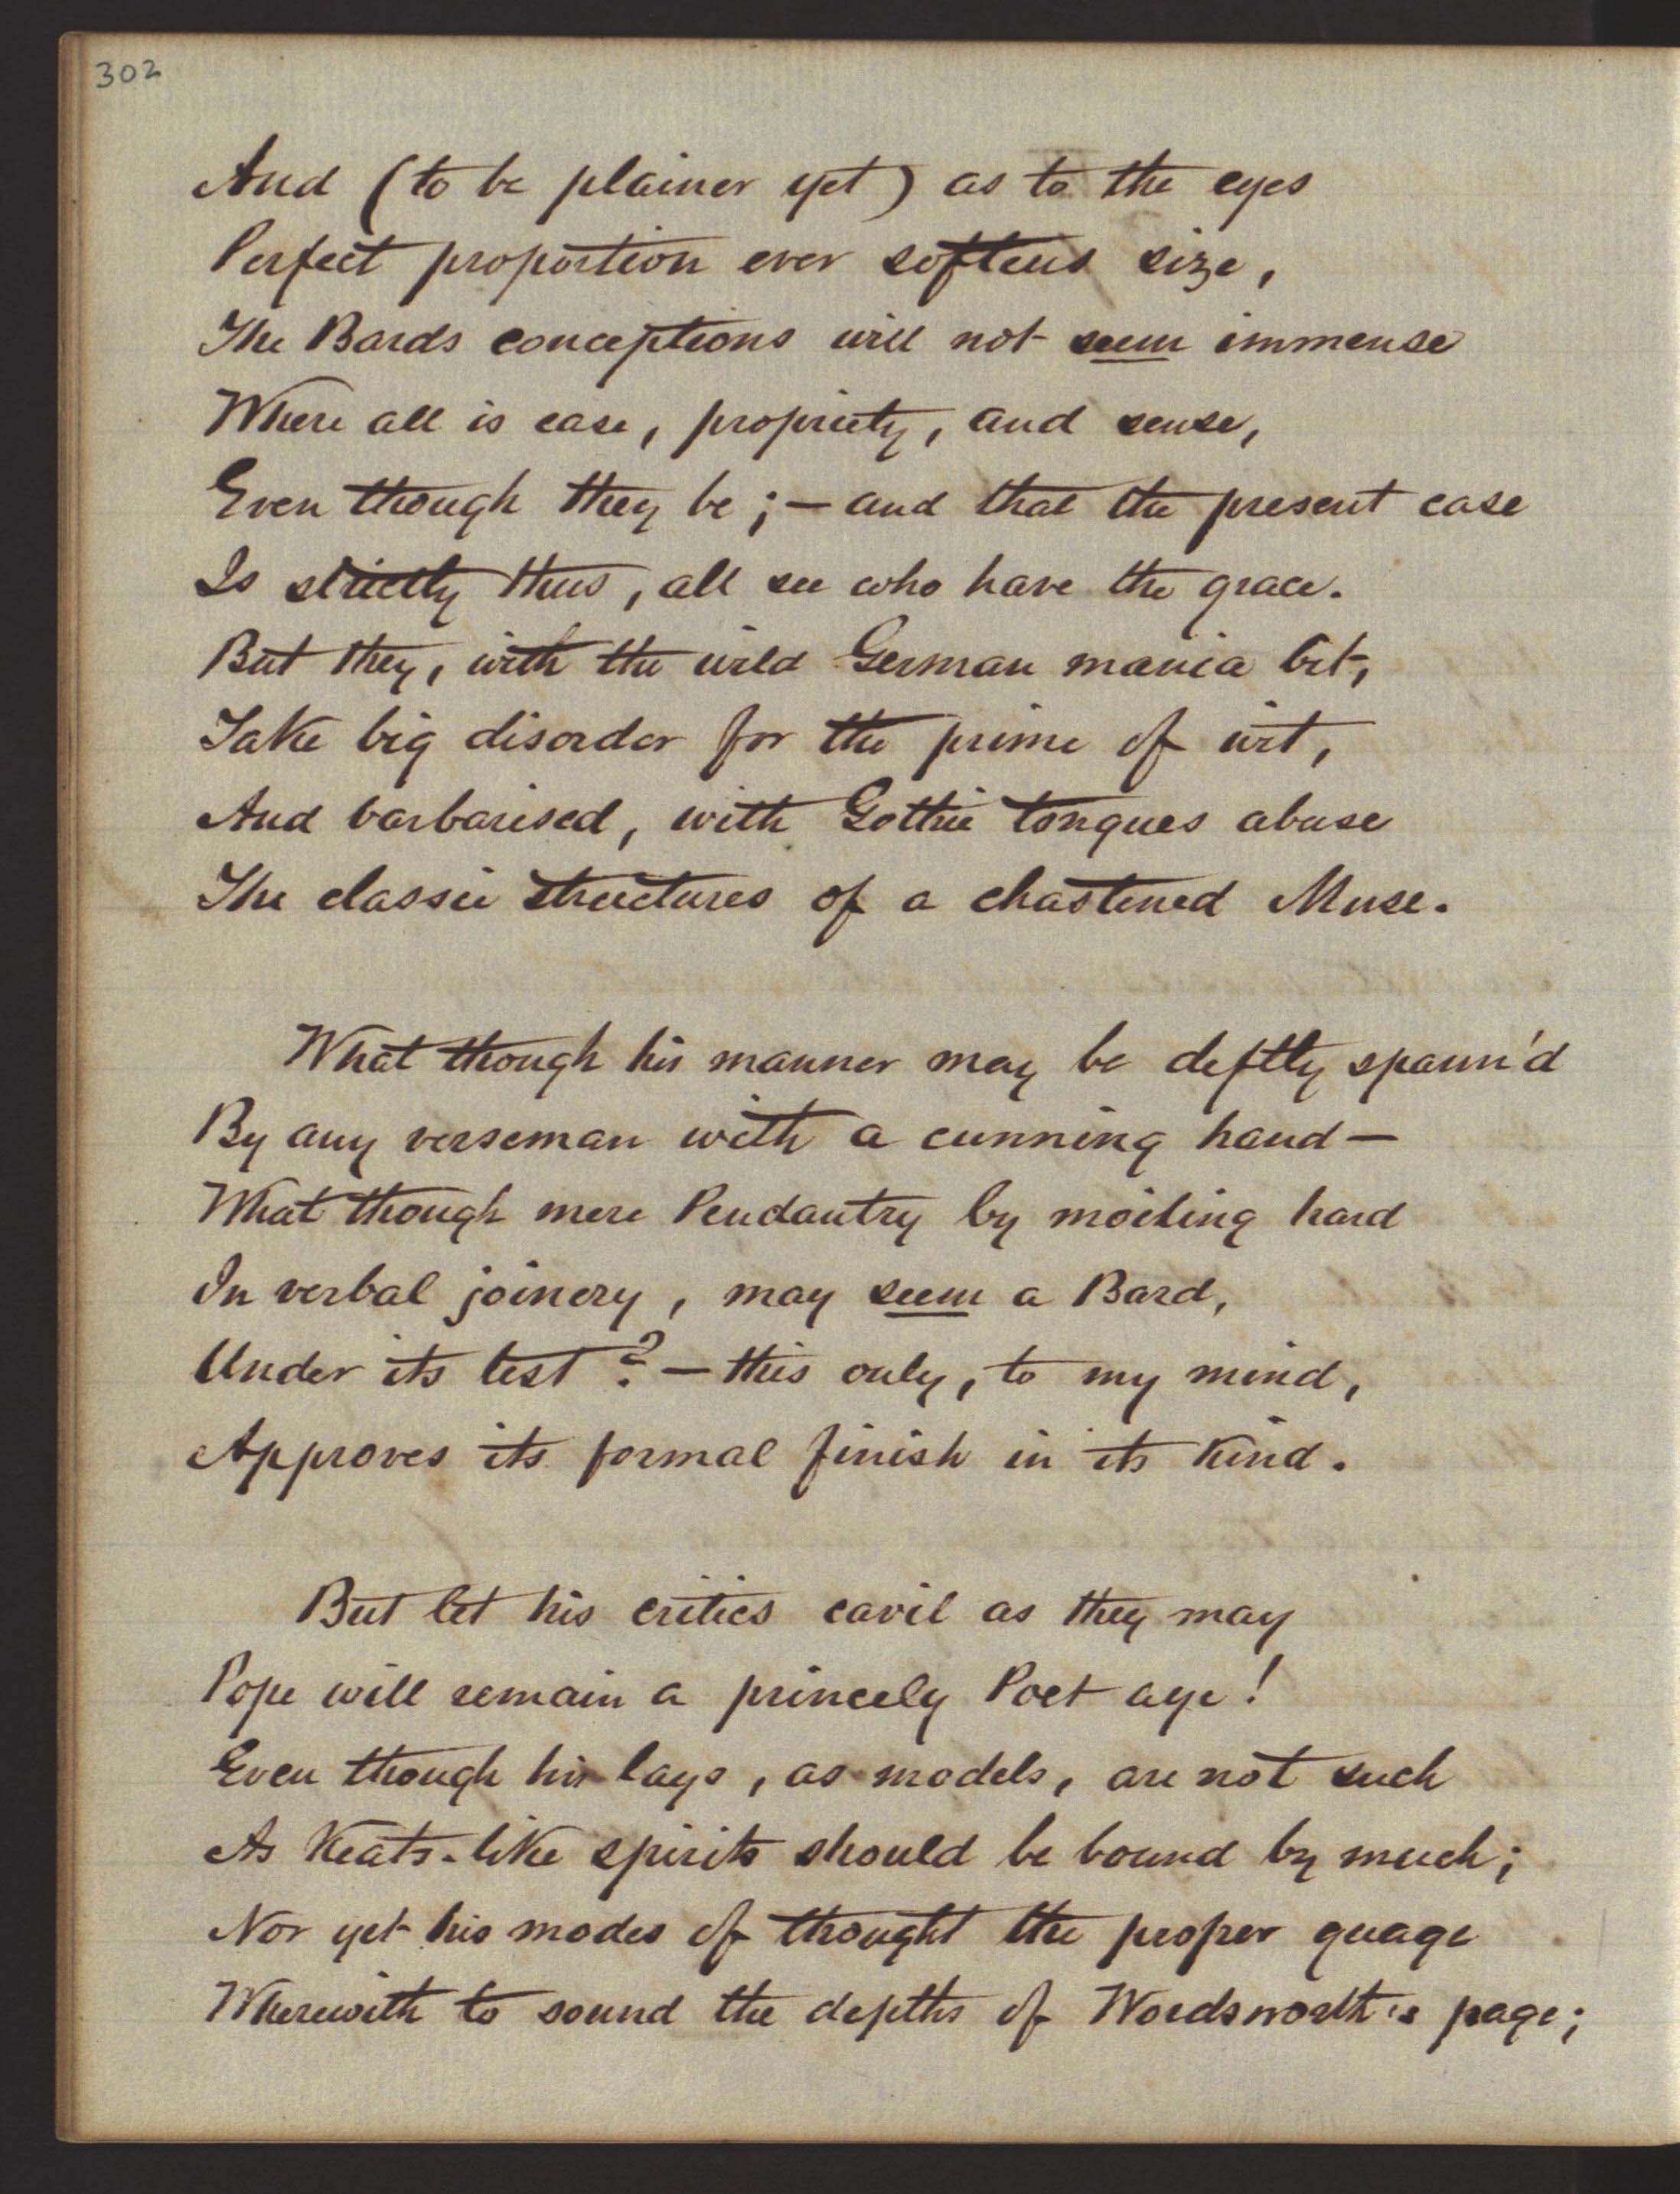 302
And (to be plainer yet) as to the eyes
Perfect proportion ever softens size,
The Bards conceptions will not seem immense
Where all is ease, propriety, and sense,
Even though they be; — and that the present case
Is strictly thus, all see who have the grace.
But they, with the wild German mania bit,
Take big disorder for the prime of wit,
And barbarised, with Gothic tongues abuse
The classic structures of a chastened Muse.
What though his manner may be deftly spann'd
By any verseman with a cunning hand —
What though mere Pendantry by moiling hard
In verbal joinery, may seem a Bard,
Under its test? — this only, to my mind,
Approves its formal finish in its kind.
But let his critics cavil as they may
Pope will remain a princely Poet aye!
Even though his lays, as models, are not such
As Keats-like spirits should be bound by much;
Nor yet his modes of thought the proper guage
Wherewith to sound the depths of Wordsworth's page;